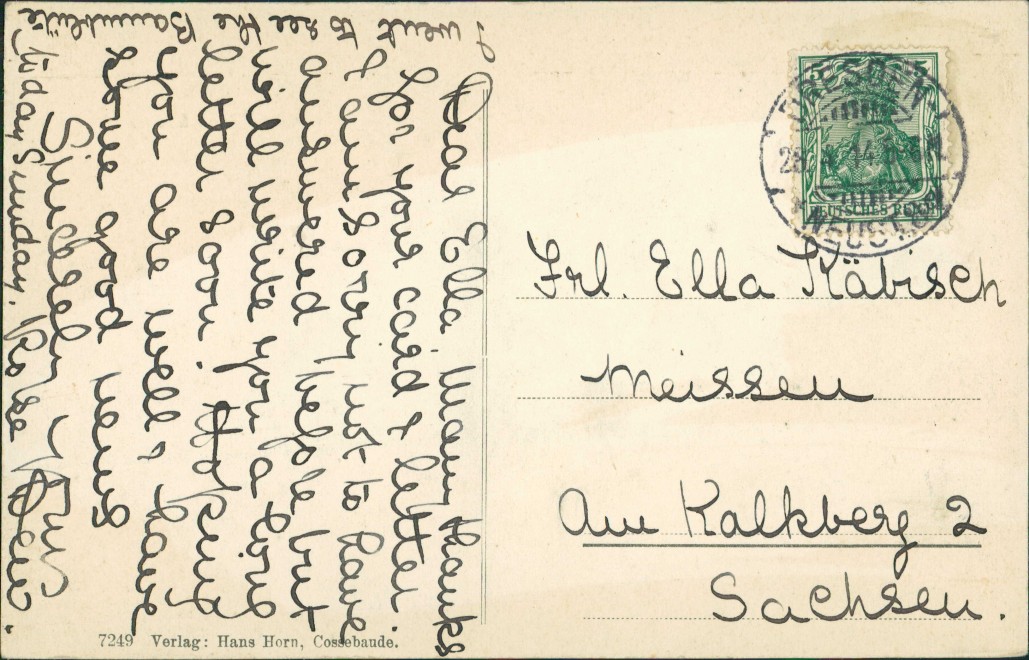 Dear Ella, Many thanks
for your card & letter.
I am sorry not to have
answered before but
will write you a long
letter soon. Hoping
you are well, & have
some good news
Sincerely yours
Rose
I went to see the Baumblüte
today Sunday.
DEUTSCHES REICH
5
DRESDEN
NEUST.
Frl. Ella Käbisch
Meissen
Am Kalkberg 2
Sachsen.
7249 Verlag: Hans Horn, Cossebaude.